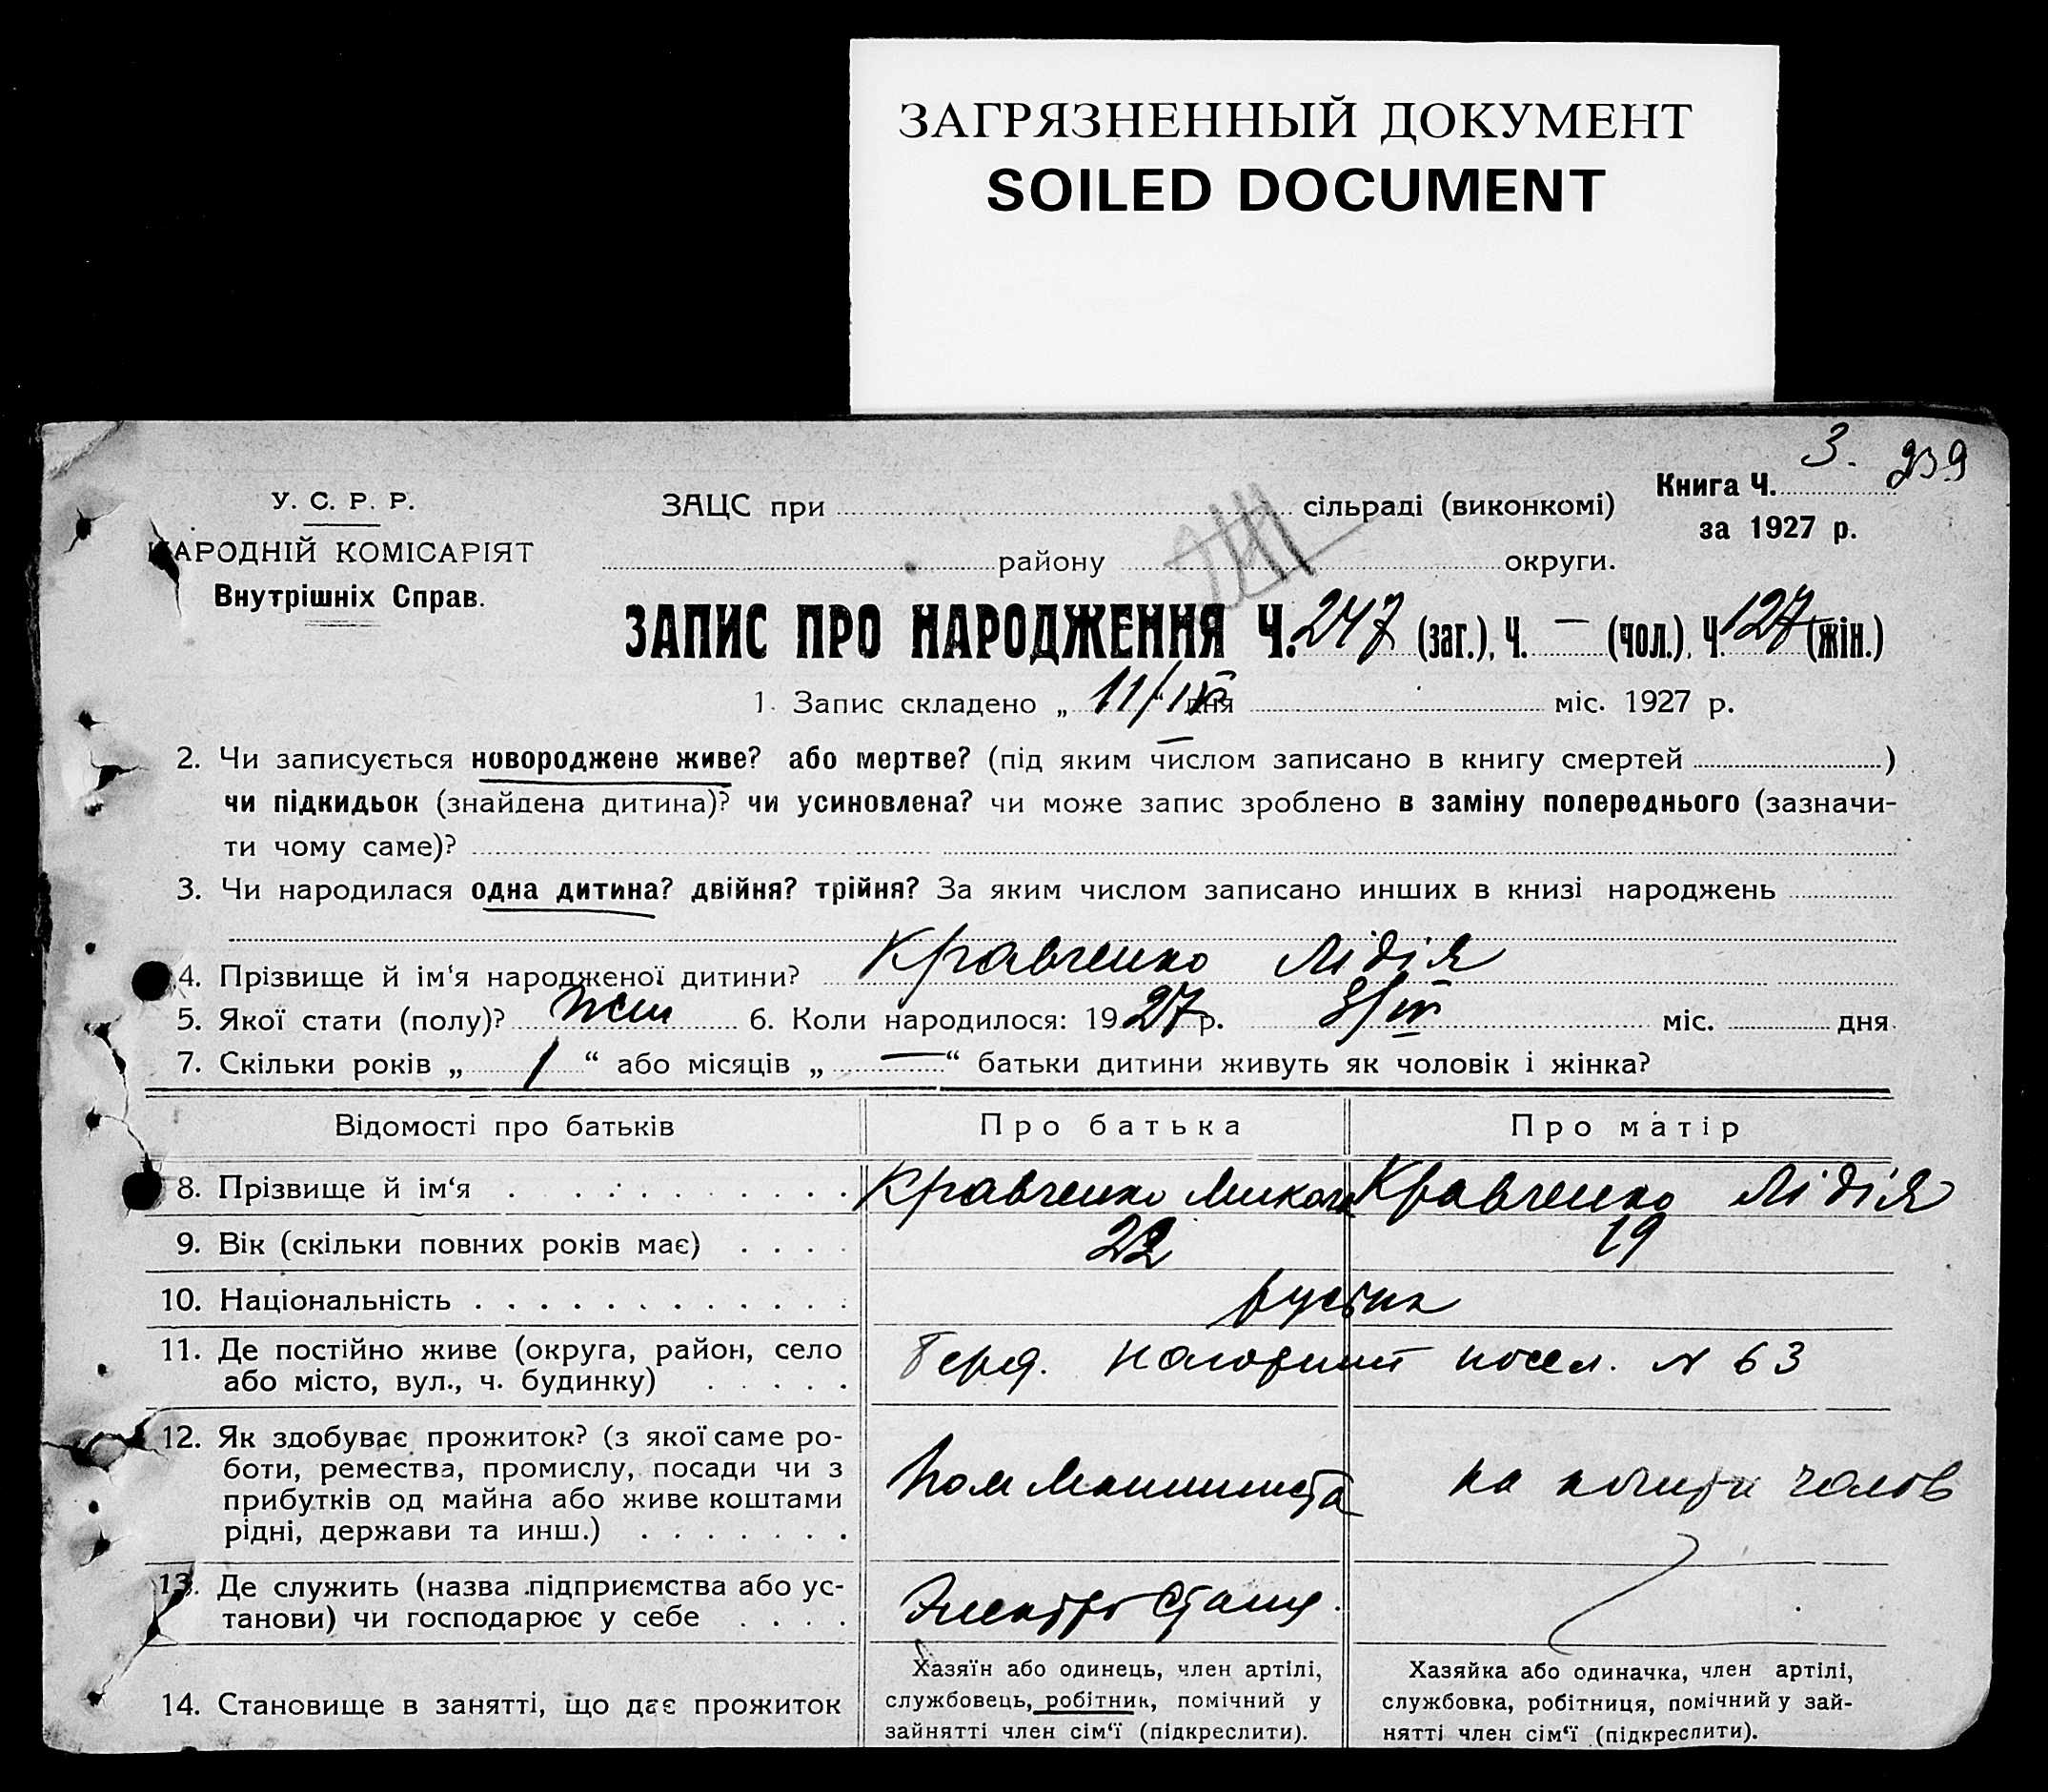 ЗАГРЯЗНЕННЫЙ ДОКУМЕНТ
SOILED DOCUMENT
3. 239
У. С. Р. Р.
НАРОДНІЙ КОМІСАРІЯТ
Внутрішніх Справ.
ЗАЦС при сільраді (виконкомі)
району округи.
Книга Ч.
за 1927 р.
ЗАПИС ПРО НАРОДЖЕННЯ Ч. 247 (заг.), Ч. — (чол.), Ч. 127 (жін.)
1. Запис складено „ 11/IV “ дня міс. 1927 р.
2. Чи записується новороджене живе? або мертве? (під яким числом записано в книгу смертей )
чи підкидьок (знайдена дитина)? чи усиновлена? чи може запис зроблено в заміну попереднього (зазначи-
ти чому саме)?
3. Чи народилася одна дитина? двійня? трійня? За яким числом записано инших в книзі народжень
4. Прізвище й ім‘я народженої дитини? Кравченко Лідія
5. Якої стати (полу)? жін 6. Коли народилося: 1927 р. міс. дня.
7. Скільки років „ 1 “ або місяців „ — “ батьки дитини живуть як чоловік і жінка?
Відомості про батьків Про батька Про матір
8. Прізвище й ім‘я Кравченко Микола Кравченко Лідія
9. Вік (скільки повних років має) 22 19
10. Національність
11. Де постійно живе (округа, район, село
або місто, вул., ч. будинку) посел. N 63
12. Як здобуває прожиток? (з якої саме ро-
боти, ремества, промислу, посади чи з
прибутків од майна або живе коштами
рідні, держави та инш.) Пом Машиниста на кошти чолов
13. Де служить (назва підприємства або ус-
танови) чи господарює у себе Электро Станц.
14. Становище в занятті, що дає прожиток
Хазяїн або одинець, член артілі,
службовець, робітник, помічний у
зайнятті член сім‘ї (підкреслити).
Хазяйка або одиначка, член артілі,
службовка, робітниця, помічний у зай-
нятті член сім‘ї (підкреслити).